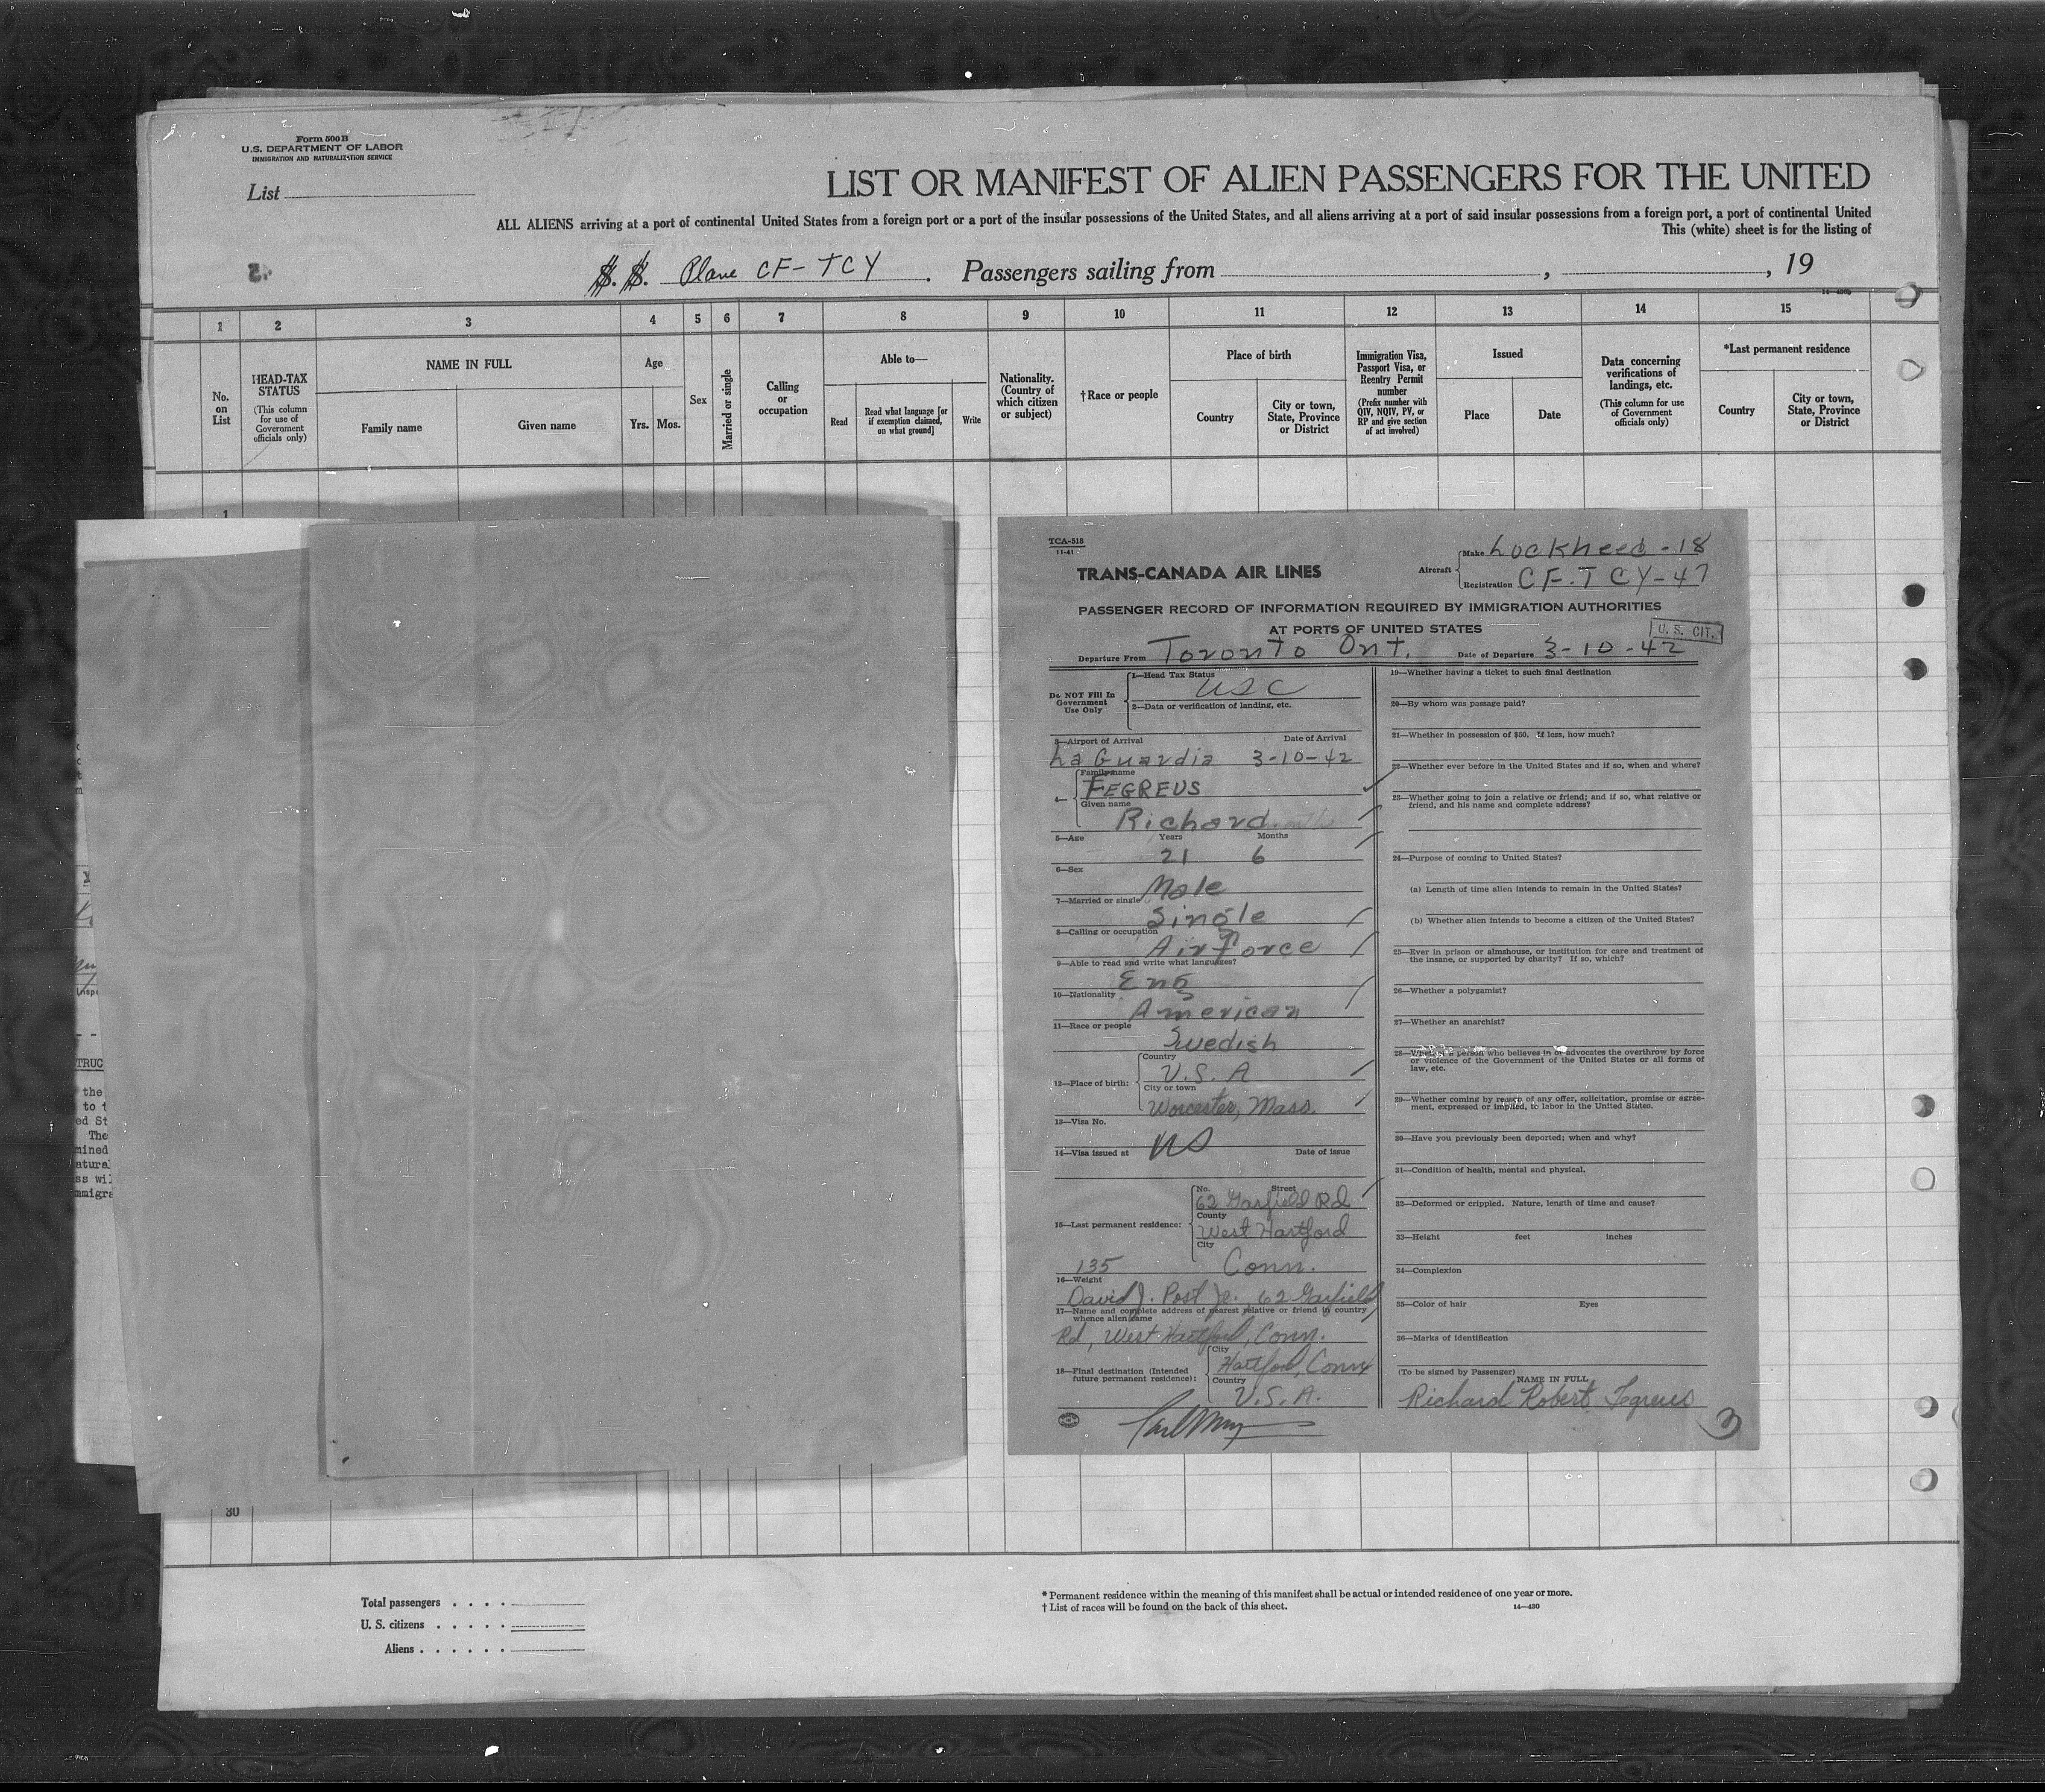 Form 500 B
U.S. DEPARTMENT OF LABOR
IMMIGRATION AND NATURALIZATION SERVICE
List
LIST OR MANIFEST OF ALIEN PASSENGERS FOR THE UNITED
ALL ALIENS arriving at a port of continental United States from a foreign port or a port of the insular possessions of the United States, and all aliens arriving at a port of said insular possessions from a foreign port, a port of continental United
This (white) sheet is for the listing of
S. S. Plane CF-TCY . Passengers sailing from , , 19
1 2 3 4 5 6 7 8 9 10 11 12 13 14 15
No. on List
HEAD-TAX STATUS
(This column for use of Government officials only)
NAME IN FULL
Family name
Given name
Age
Yrs. Mos.
Sex
Married or single
Calling or occupation
Able to—
Read
Read what language [or if exemption claimed, on what ground]
Write
Nationality. (Country of which citizen or subject)
†Race or people
Place of birth
Country
City or town, State, Province or District
Immigration Visa, Passport Visa, or Reentry Permit number
(Prefix number with QIV, NQIV, PV, or RP and give section of act involved)
Issued
Place
Date
Data concerning verifications of landings, etc.
(This column for use of Government officials only)
*Last permanent residence
Country
City or town, State, Province or District
1
TRUC
the
ed St
The
mined
ss wil
mmigra
TCA-518
11-41
TRANS-CANADA AIR LINES
Aircraft
Make Lockheed-18
Registration CF-TCY-47
PASSENGER RECORD OF INFORMATION REQUIRED BY IMMIGRATION AUTHORITIES
AT PORTS OF UNITED STATES
U. S. CIT.
Departure From Toronto Ont. Date of Departure 3-10-42
Do NOT Fill In Government Use Only
1—Head Tax Status
USC
2—Data or verification of landing, etc.
3—Airport of Arrival Date of Arrival
La Guardia 3-10-42
4— Family name
FEGREUS
Given name
Richard
5—Age Years Months
21 6
6—Sex
Male
7—Married or single
Single
8—Calling or occupation
Air Force
9—Able to read and write what languages?
Eng
10—Nationality
American
11—Race or people
Swedish
12—Place of birth:
Country
U.S.A
City or town
Worcester, Mass.
13—Visa No.
14—Visa issued at Date of issue
15—Last permanent residence:
No. Street
62 Garfield Rd
County
West Hartford
City
135 Conn.
16—Weight
David J. Post Jr., 62 Garfield
17—Name and complete address of nearest relative or friend in country whence alien came
Rd, West Hartford, Conn.
18—Final destination (Intended future permanent residence):
City
Hartford, Conn
Country
U.S.A.
19—Whether having a ticket to such final destination
20—By whom was passage paid?
21—Whether in possession of $50. If less, how much?
22—Whether ever before in the United States and if so, when and where?
23—Whether going to join a relative or friend; and if so, what relative or friend, and his name and complete address?
24—Purpose of coming to United States?
(a) Length of time alien intends to remain in the United States?
(b) Whether alien intends to become a citizen of the United States?
25—Ever in prison or almshouse, or institution for care and treatment of the insane, or supported by charity? If so, which?
26—Whether a polygamist?
27—Whether an anarchist?
28—Whether a person who believes in or advocates the overthrow by force or violence of the Government of the United States or all forms of law, etc.
29—Whether coming by reason of any offer, solicitation, promise or agreement, expressed or implied, to labor in the United States.
30—Have you previously been deported; when and why?
31—Condition of health, mental and physical.
32—Deformed or crippled. Nature, length of time and cause?
33—Height feet inches
34—Complexion
35—Color of hair Eyes
36—Marks of identification
(To be signed by Passenger)
NAME IN FULL
Richard Robert Fegreus
3
30
Total passengers . . . .
U. S. citizens . . . . .
Aliens . . . . . .
* Permanent residence within the meaning of this manifest shall be actual or intended residence of one year or more.
† List of races will be found on the back of this sheet.
14—430